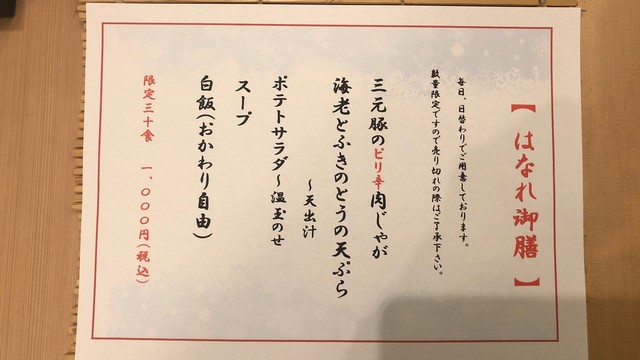 【はなれ御膳】
毎日、日替わりでご用意しております。
数量限定ですので売り切れの際はご了承下さい。
三元豚のピリ辛肉じゃが
海老とふきのとうの天ぷら
～天出汁
ポテトサラダ～温玉のせ
スープ
白飯(おかわり自由)
限定三十食 一、〇〇〇円(税込)